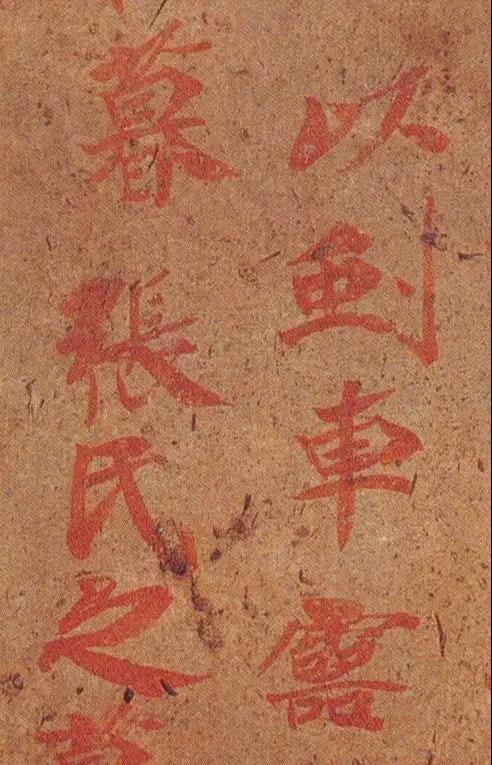 以車靈
暮張氏之